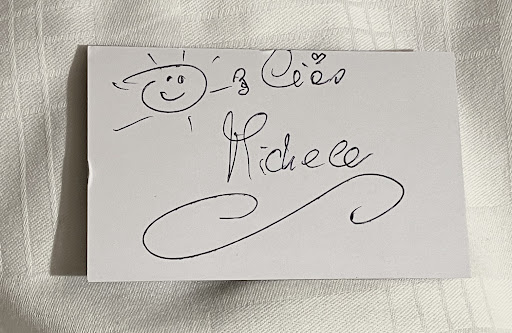 Ciao
Michele